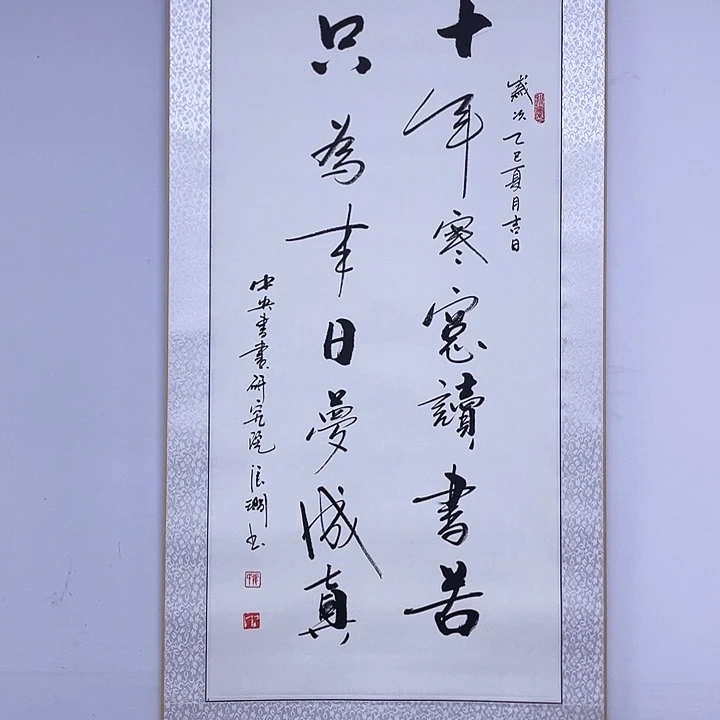 歲次乙巳夏月吉日
十年寒窻讀書苦
只為来日夢成真
中央書畫研究院 书